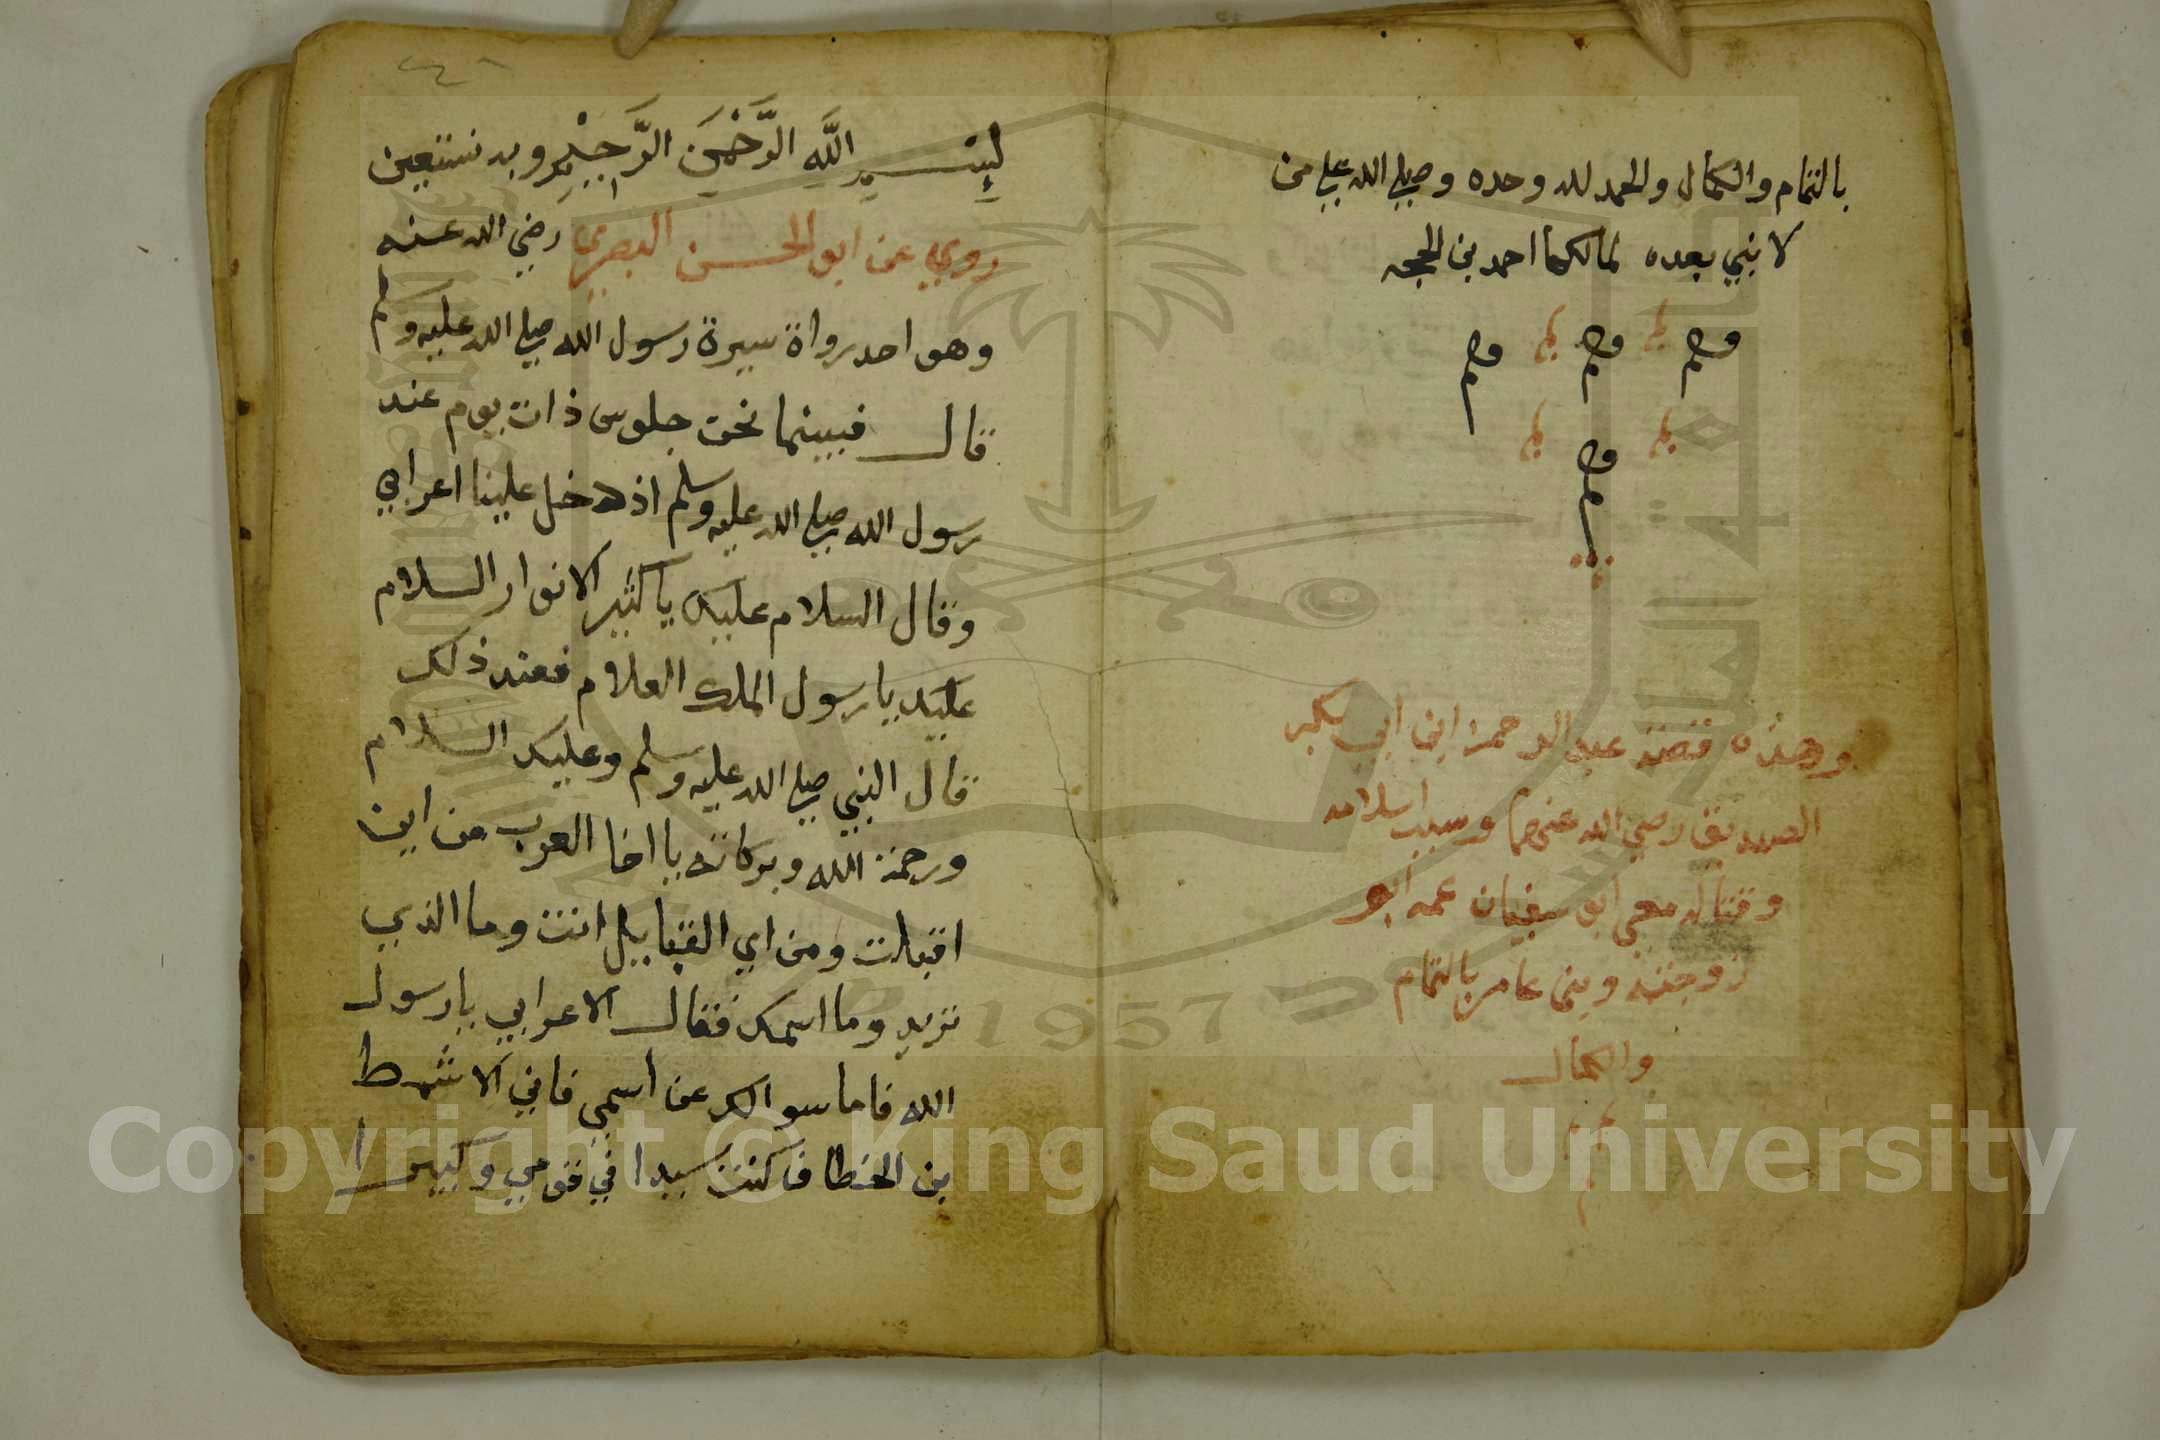 بالتمام والكمال والحمد لله وحده وصلي الله علي من
لا نبي بعده لمالكها احمد بن الحجه
وهذه قصة عبد الرحمن ابن ابي بكر
الصديق رضي الله عنهما وسبب اسلامه
وقتاله مع ابو سفيان عمه ابو
زوجته وبني عامر بالتمام
والكمال
بسم الله الرحمن الرحيم وبه نستعين
روي عن ابو الحسن البصري رضي الله عنه
وهو احد رواة سيرة رسول الله صلي الله عليه وسلم
قال فبينما نحن جلوس ذات يوم عند
رسول الله صلي الله عليه وسلم اذ دخل علينا اعرابي
وقال السلام عليك يا كثير الانوار السلام
عليك يا رسول الملك العلام فعند ذلك
قال النبي صلي الله عليه وسلم وعليك السلام
ورحمة الله وبركاته يا اخا العرب من اين
اقبلت ومن اي القبايل انت وما الذي
تريد وما اسمك فقال الاعرابي يا رسول
الله فاما سوالك عن اسمي فاني الاشرط
بن الخطاف كنت سيدا في قومي وكبيرا
Copyright © King Saud University
1957